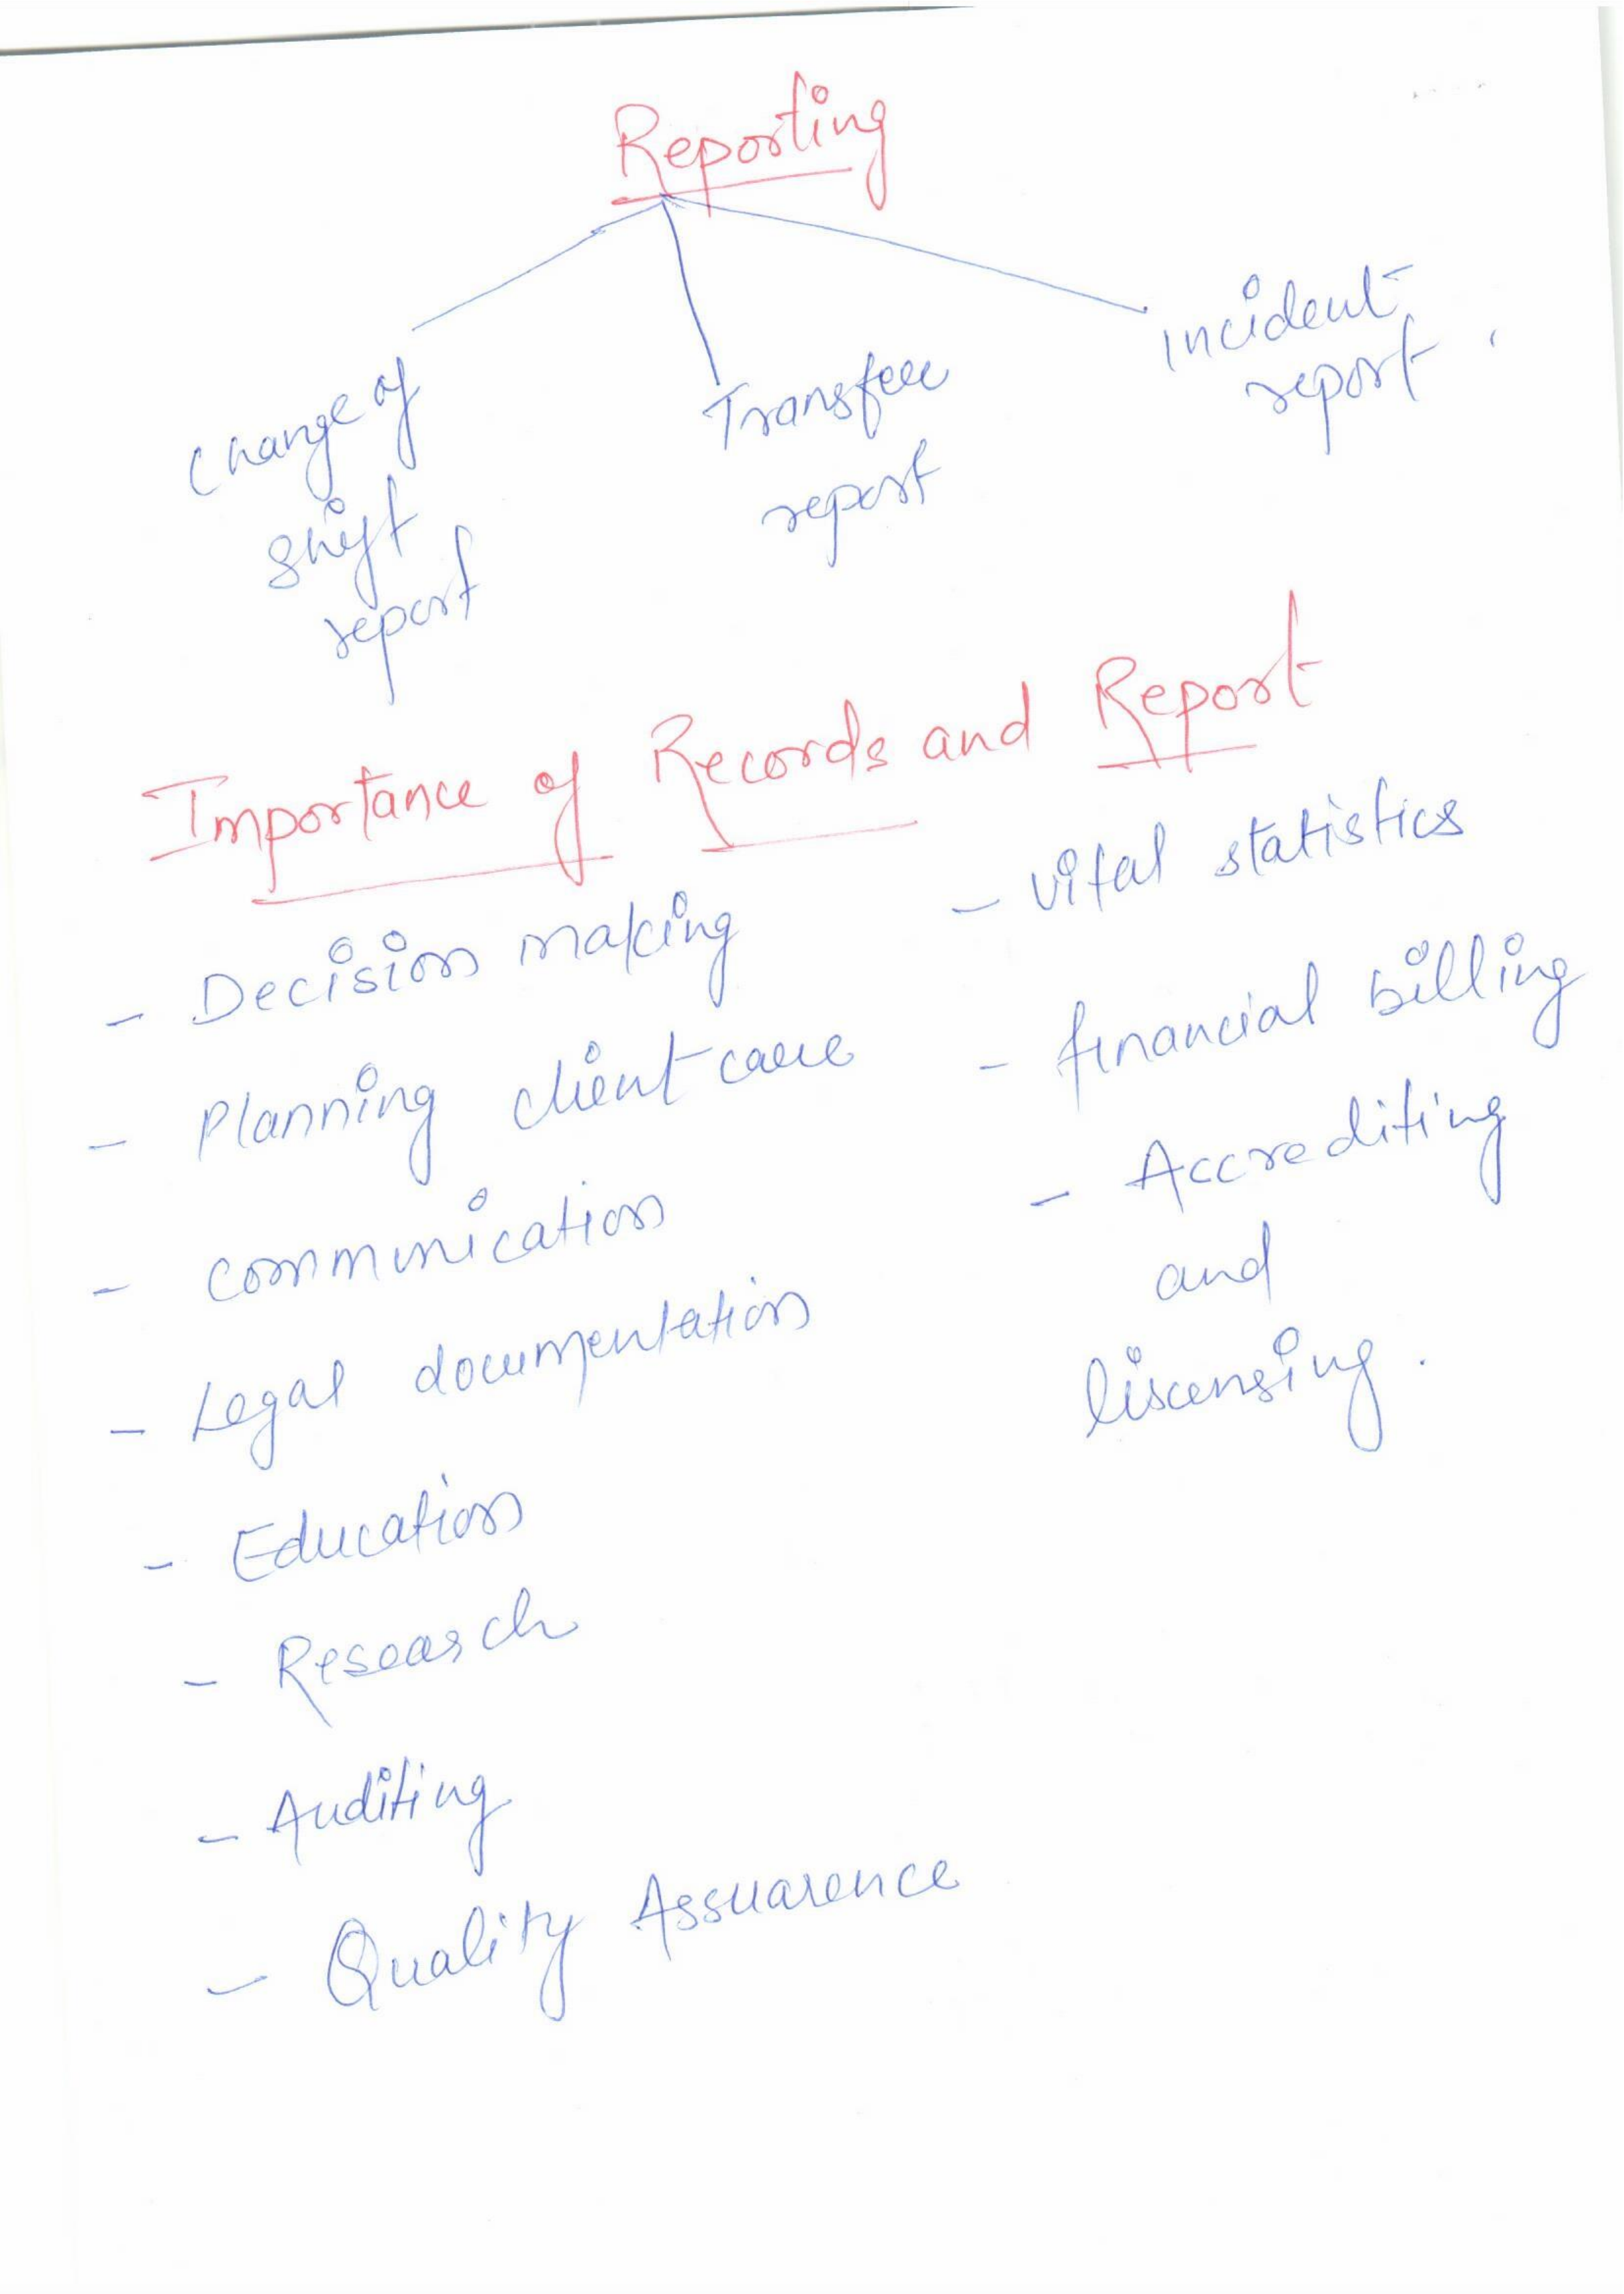 Reporting
Change of
shift
report
Transfer
report
Incident
report.
Importance of Records and Report
- Decision making
- Planning client care
- Communication
- Legal documentation
- Education
- Research
- Auditing
- Quality Assuarence
- Vital statistics
- financial billing
- Accrediting
and
liscensing.